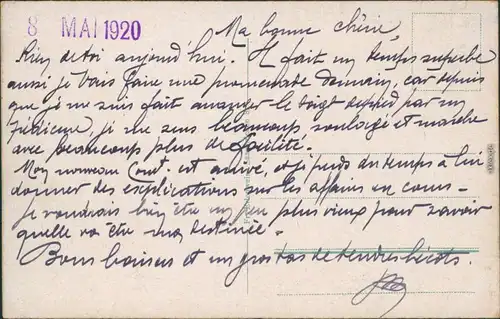 8 MAI 1920
Ma bonne chérie,
Rien de toi aujourd'hui. Il fait un temps superbe
aussi je vais faire une promenade demain, car depuis
que je me suis fait arranger le doigt de pied par un
pédicure, je me sens beaucoup soulagé et marche
avec beaucoup plus de facilité.
Mon nouveau Cont. est arrivé, et je perds du temps à lui
donner des explications sur les affaires en cours.
Je voudrais bien être un peu plus vieux pour savoir
quelle va être ma destinée.
Bons baisers et un gros tas de tendres bécots.